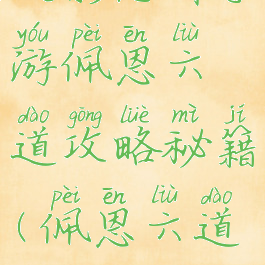 yóu pèi ēn liù
游佩恩六
dào gōng lüè mì jí
道攻略秘籍
pèi ēn liù dào
(佩恩六道